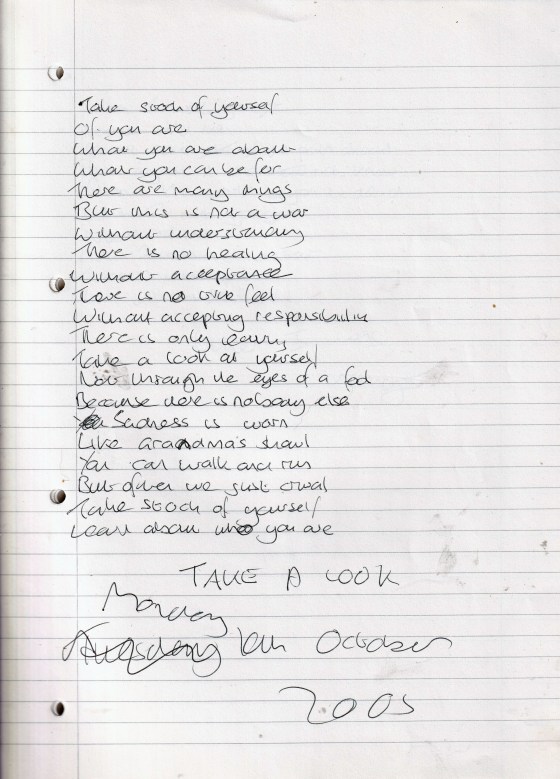 Take stock of yourself
Of you are
What you are about
What you can be for
There are many things
But this is not a war
Without understanding
There is no healing
Without acceptance
There is no true feel
Without accepting responsibility
There is only
Take a look at yourself
Not through the eyes of a fool
Because there is nobody else
Sadness is worn
Like Grandma's shawl
You can walk and run
But often we just crawl
Take stock of yourself
Learn about who you are
TAKE A LOOK
Monday
10th October
2005